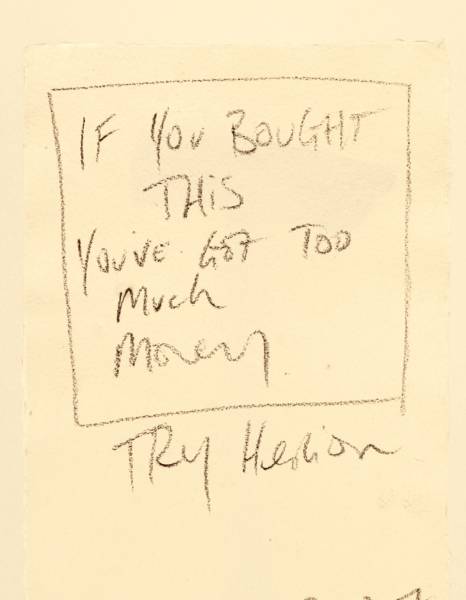 IF YOU BOUGHT
THIS
YOU'VE GOT TOO
MUCH
MONEY.
TRY Herion